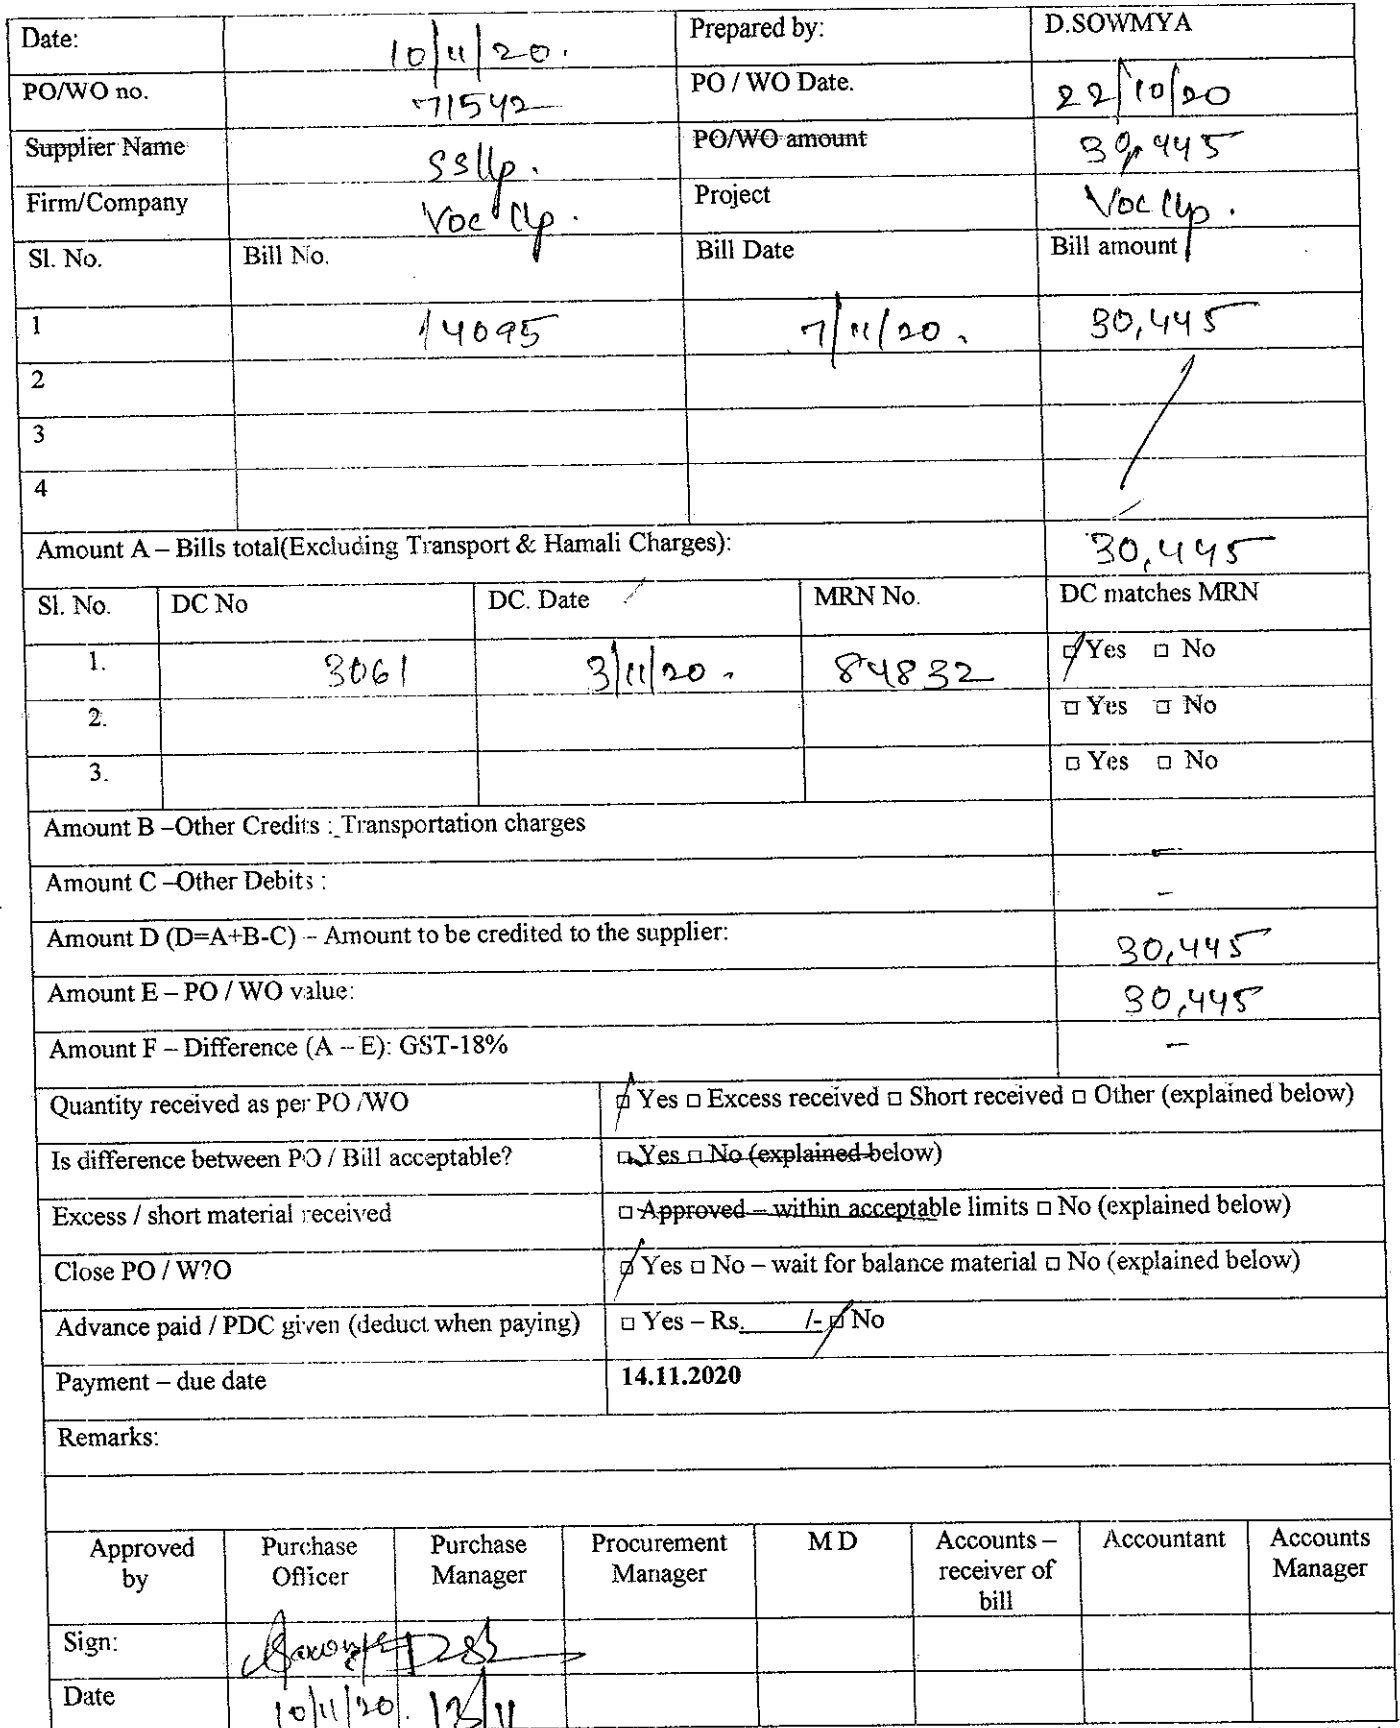 Date: 10/11/20. Prepared by: D.SOWMYA
PO/WO no. 71542 PO / WO Date. 22/10/20
Supplier Name SSllp. PO/WO amount 30,445
Firm/Company Voc llp. Project Voc llp.
Sl. No. Bill No. Bill Date Bill amount
1 14095 7/11/20. 30,445
2
3
4
Amount A – Bills total(Excluding Transport & Hamali Charges): 30,445
Sl. No. DC No DC. Date MRN No. DC matches MRN
1. 3061 3/11/20. 84832 □ Yes □ No
2. □ Yes □ No
3. □ Yes □ No
Amount B –Other Credits : Transportation charges -
Amount C –Other Debits : -
Amount D (D=A+B-C) – Amount to be credited to the supplier: 30,445
Amount E – PO / WO value: 30,445
Amount F – Difference (A – E): GST-18% -
Quantity received as per PO /WO □ Yes □ Excess received □ Short received □ Other (explained below)
Is difference between PO / Bill acceptable? □ Yes □ No (explained below)
Excess / short material received □ Approved – within acceptable limits □ No (explained below)
Close PO / W?O □ Yes □ No – wait for balance material □ No (explained below)
Advance paid / PDC given (deduct when paying) □ Yes – Rs.____ /- □ No
Payment – due date 14.11.2020
Remarks:
Approved by Purchase Officer Purchase Manager Procurement Manager M D Accounts – receiver of bill Accountant Accounts Manager
Sign:
Date 10/11/20.